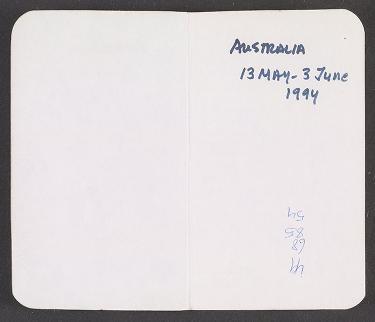 AUSTRALIA
13 MAY - 3 June
1994
44
68
85
54